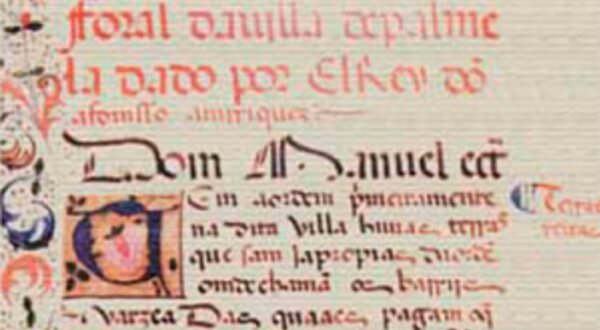 fforal da villa de palme
la dado por ElRey dõ
afomsso amrriquez
Dom Manuel ect
Tem a ordem primeiramente
na dita villa huũas terras
que sam
omde chamã os barrijs
varzea Das quaaes pagam
Terras